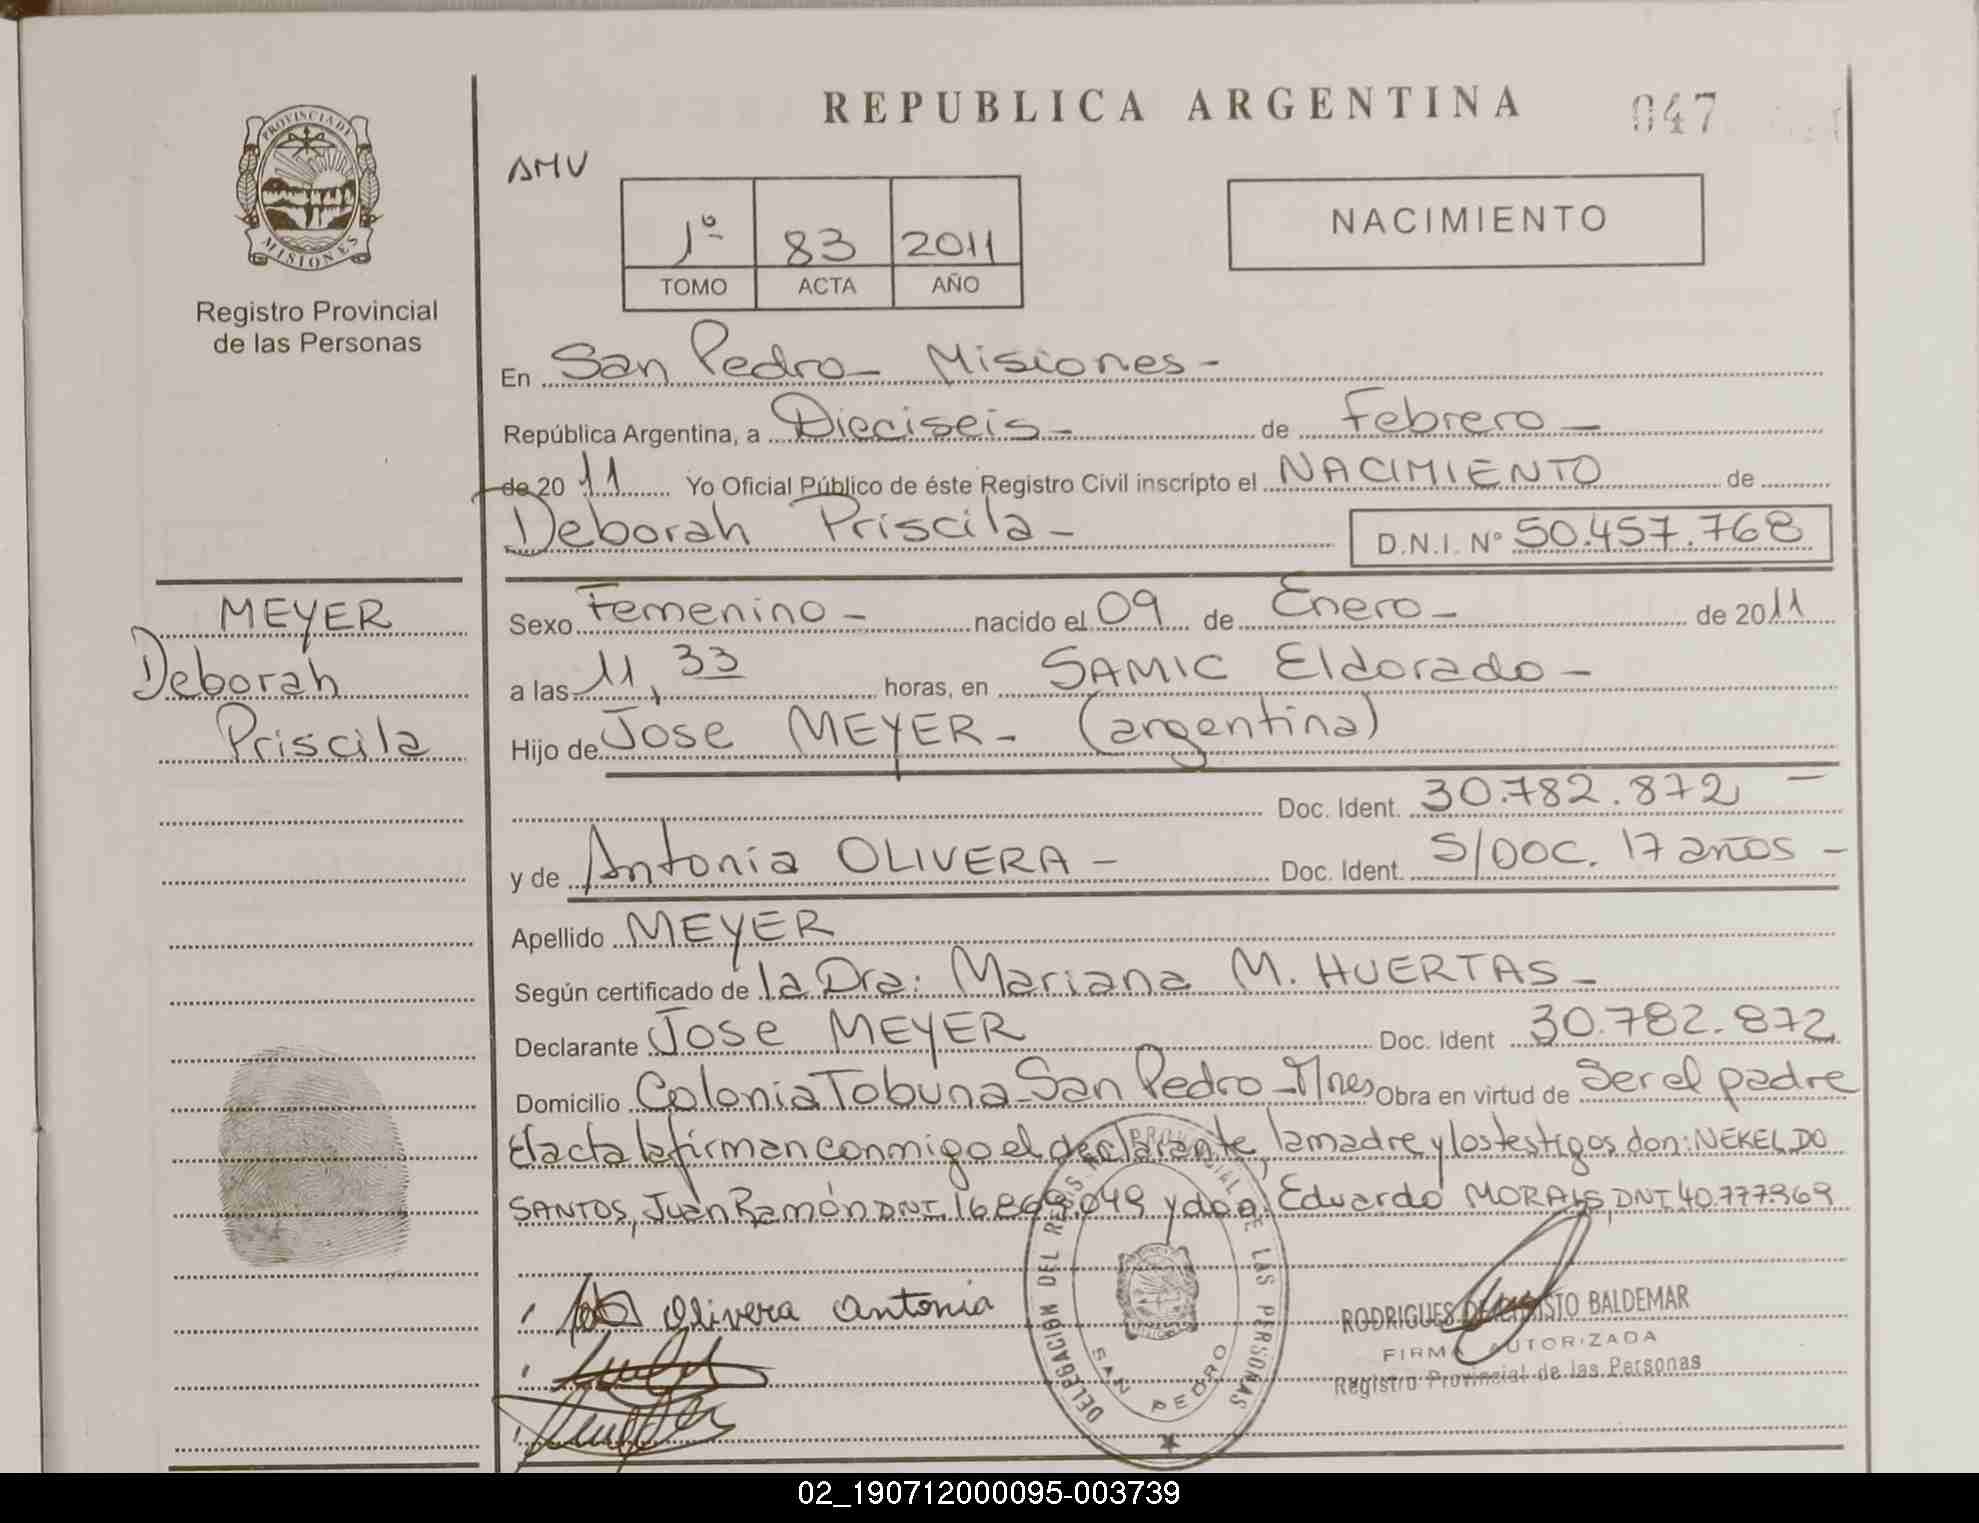 REPUBLICA ARGENTINA
047
PROVINCIA DE
MISIONES
Registro Provincial
de las Personas
AMV
1º 83 2011
TOMO ACTA AÑO
NACIMIENTO
En San Pedro - Misiones -
República Argentina, a Dieciseis - de Febrero -
de 20 11 Yo Oficial Público de éste Registro Civil inscripto el NACIMIENTO de
Deborah Priscila - D.N.I. Nº 50.457.768
MEYER
Deborah
Priscila
Sexo Femenino - nacido el 09 de Enero - de 2011
a las 11,33 horas, en SAMIC Eldorado -
Hijo de Jose MEYER - (argentina)
Doc. Ident. 30.782.872 -
y de Antonia OLIVERA - Doc. Ident. S/DOC. 17 años -
Apellido MEYER
Según certificado de la Dra: Mariana M. HUERTAS -
Declarante Jose MEYER Doc. Ident 30.782.872
Domicilio Colonia Tobuna - San Pedro - Mnes Obra en virtud de Ser el padre
El acta la firman conmigo el declarante, la madre y los testigos don: NEKEL DO
SANTOS, Juan Ramón DNI. 16.869.049 y don: Eduardo MORAIS, DNI. 40.777.969
Olivera Antonia
DELEGACION DEL REGIS PROVINCIAL DE LAS PERSONAS
SAN PEDRO
RODRIGUES BALDEMAR
FIRMA AUTORIZADA
Registro Provincial de las Personas
02_190712000095-003739